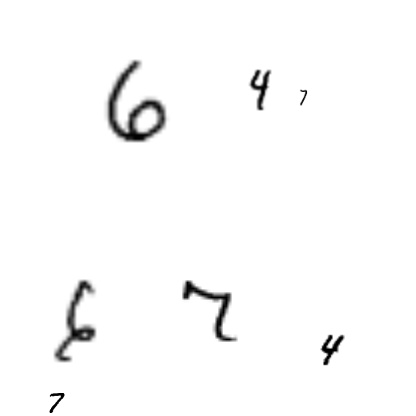 6 4 7
6 7 4
7